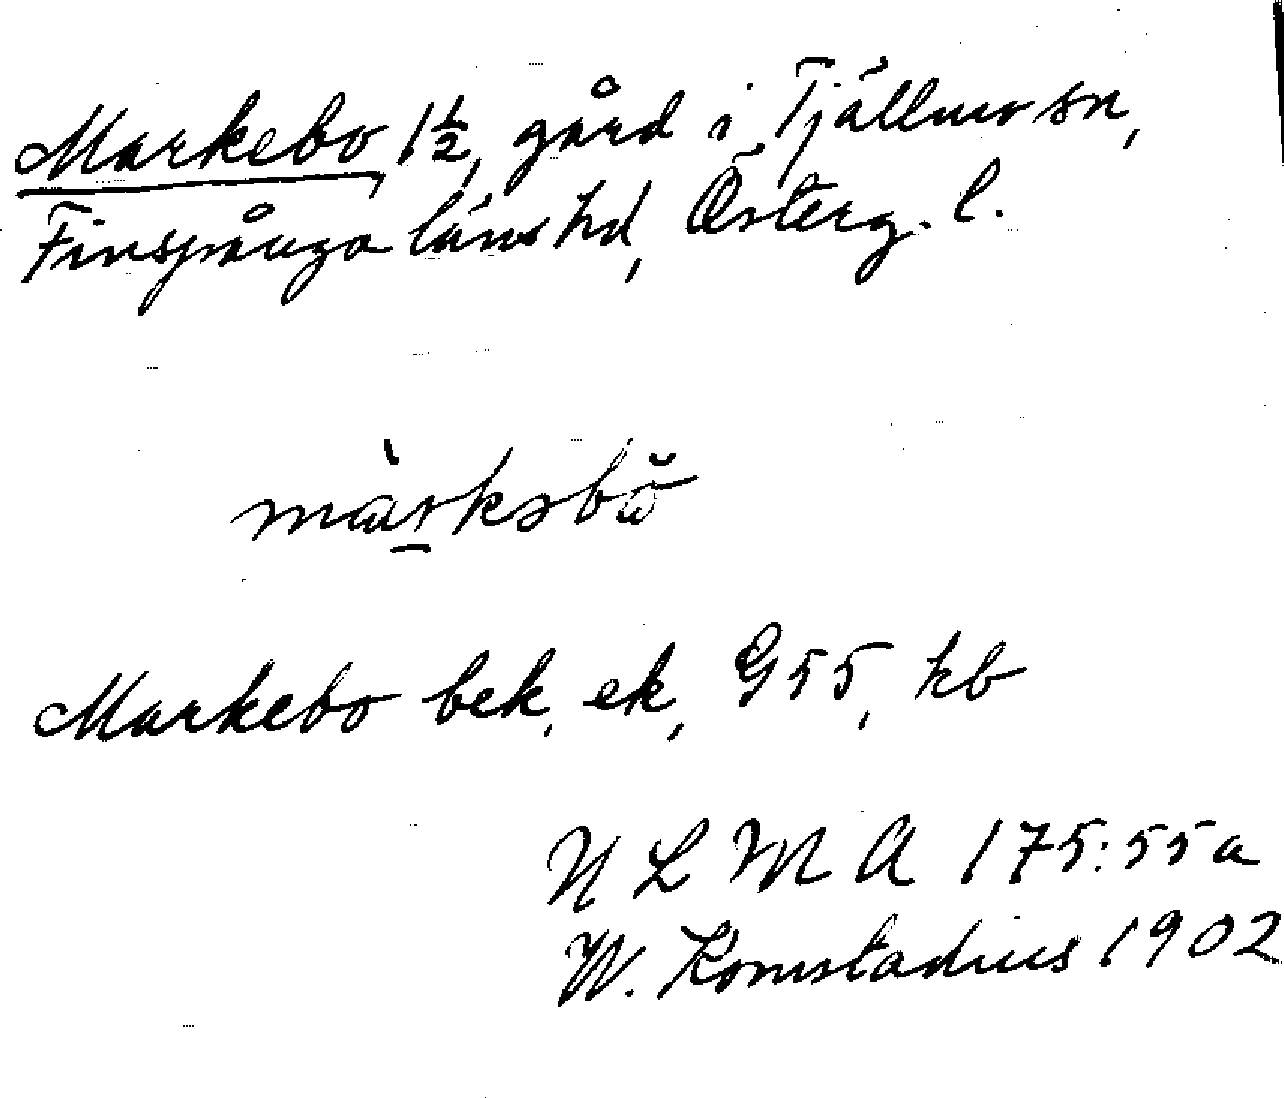 Markebo 1½, gård i Tjällmo sn,
Finspånga läns hd, Österg. l.
màrkəbŏ
Markebo bek, ek, G55, kb
N L M A 175:55a
W. Komstadius 1902